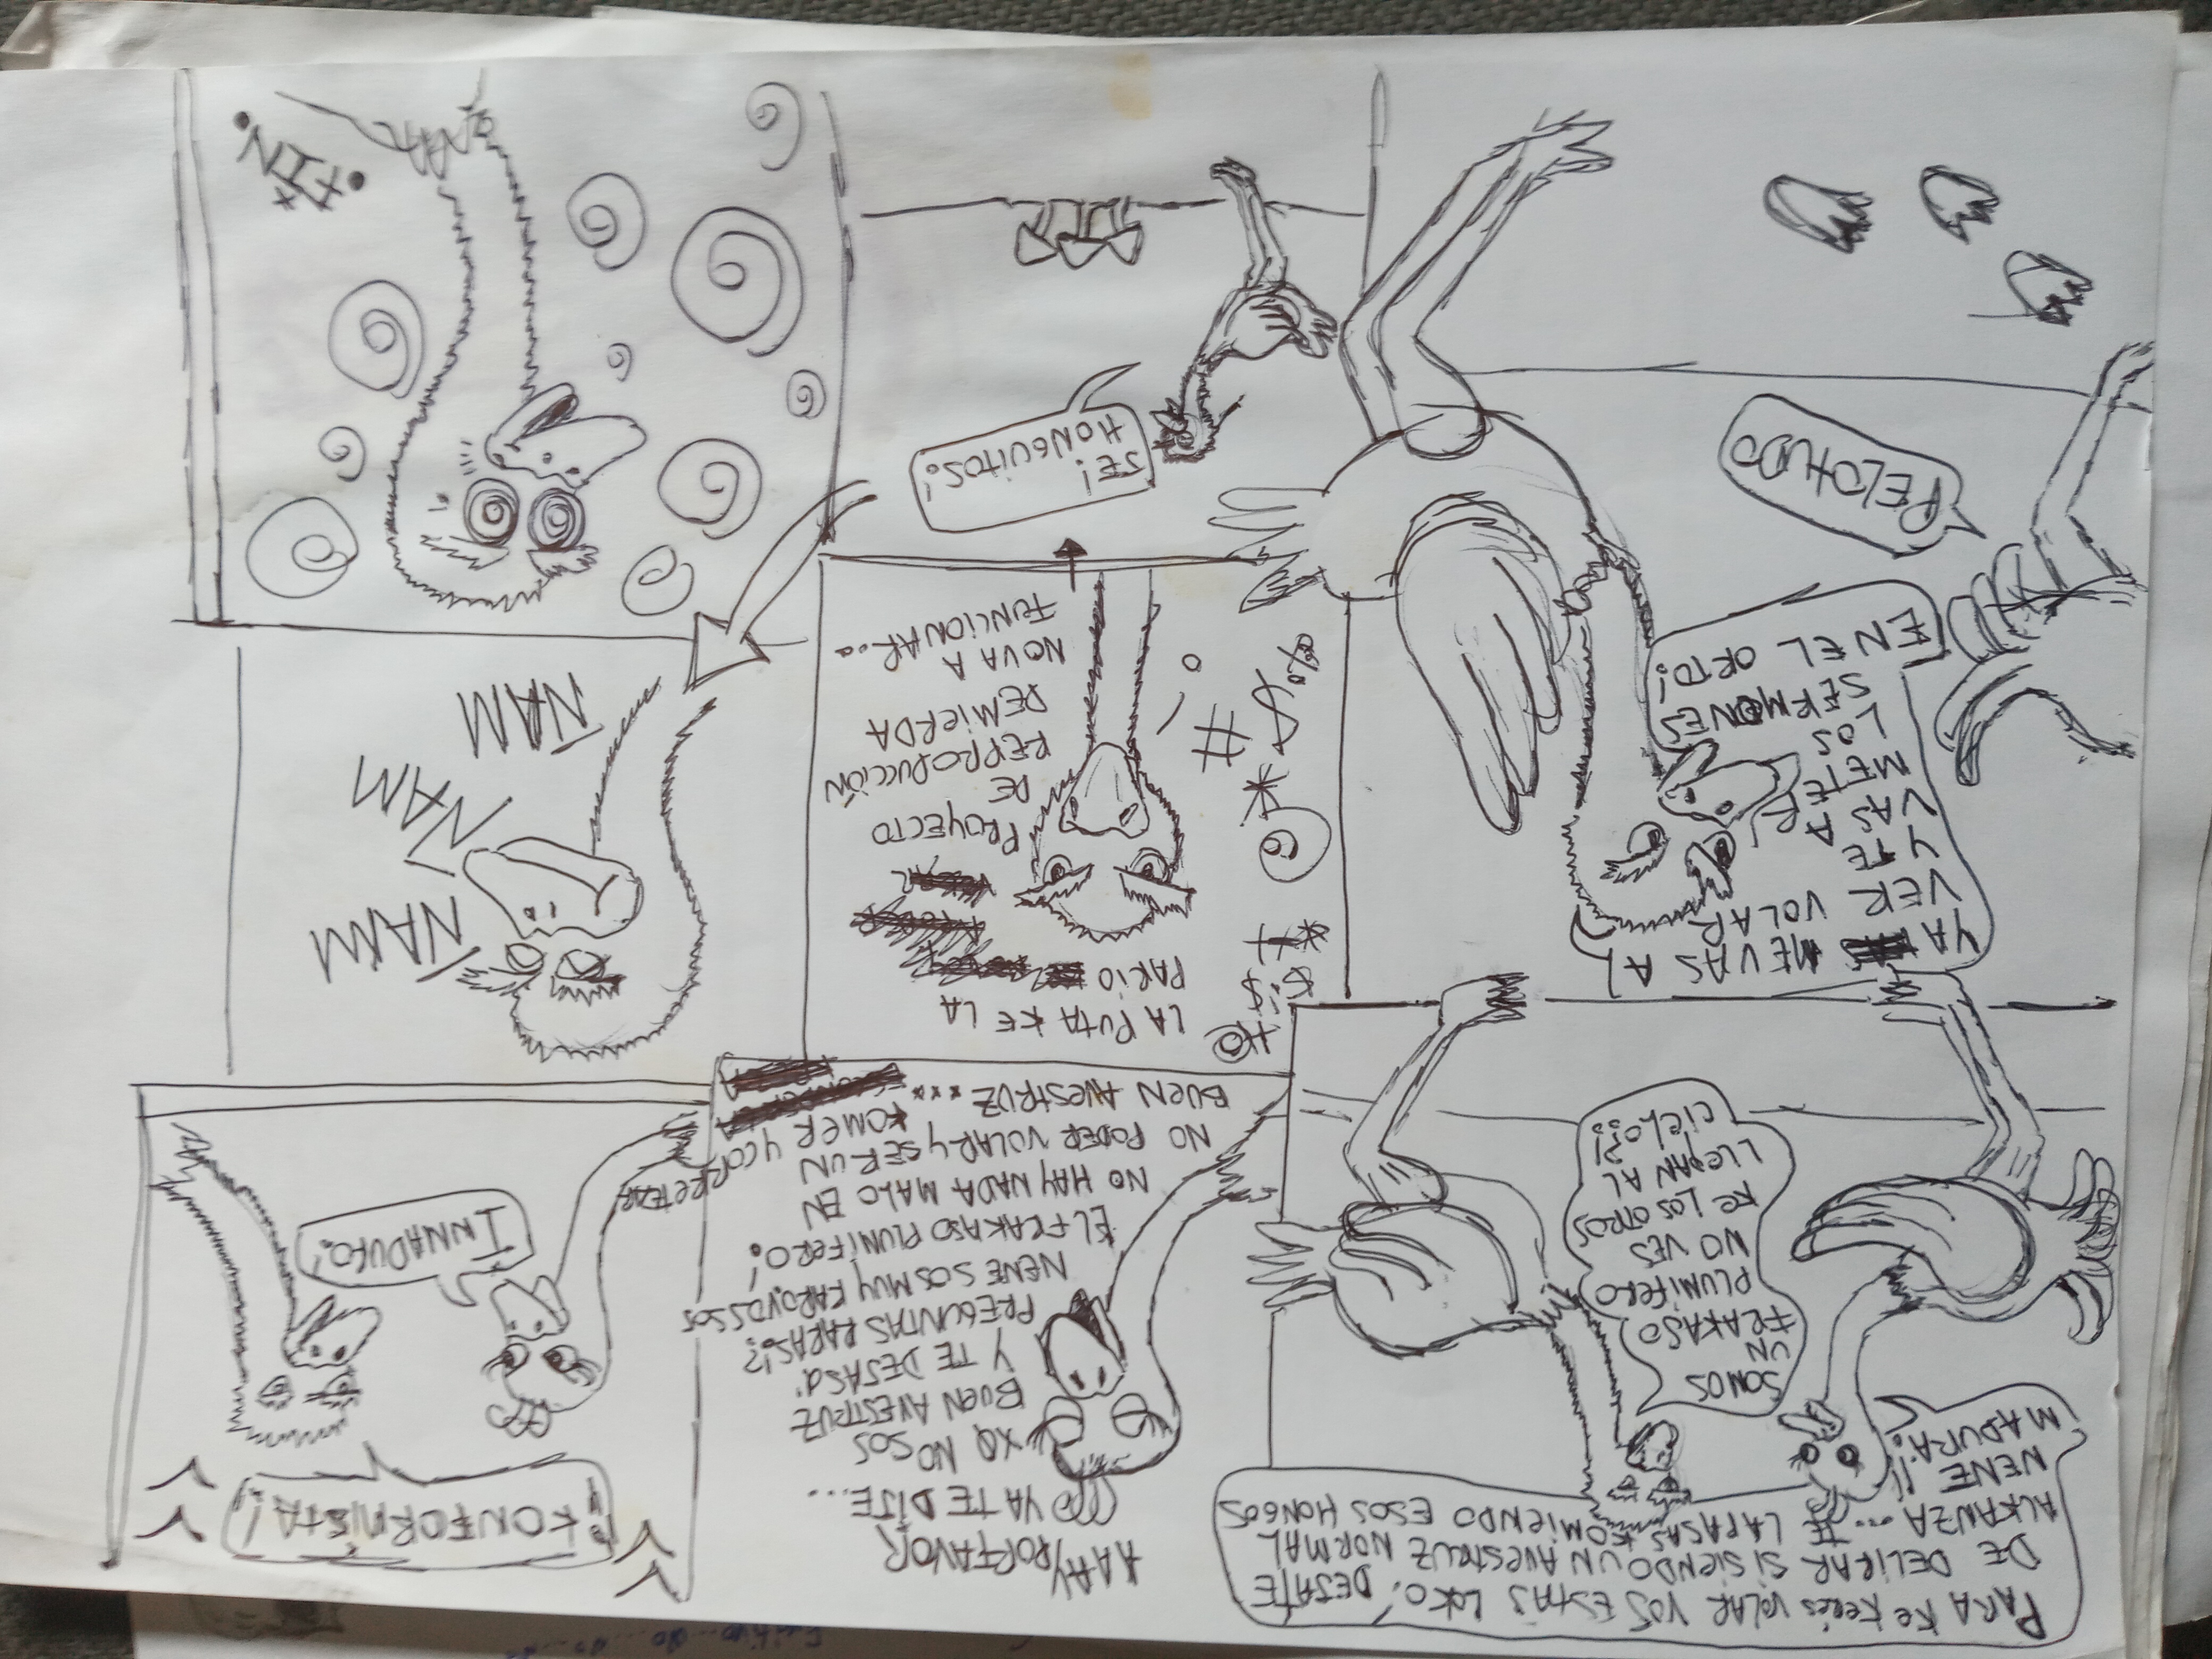 PARA KE KERÉS VOLAR VOS ESTÁS LOKO! DEJATE
DE DELIRAR SI SIENDO UN AVESTRUZ NORMAL
ALKANZA... TE LA PASAS KOMIENDO ESOS HONGOS
NENE
¡MADURA!!!
SOMOS
UN
FRAKASO
PLUMÍFERO
NO VES
KE LOS OTROS
LLEGAN AL
CIELO?!
AAAAY PORFAVOR
YA TE DIJE...
XQ NO SOS
BUEN AVESTRUZ
Y TE DEJAS d'
PREGUNTAS RARAS!?
NENE SOS MUY RARO, VOS SOS
EL FRAKASO PLUMÍFERO!
NO HAY NADA MALO EN
NO PODER VOLAR Y SER UN
BUEN AVESTRUZ... KOMER Y CORRETEAR
¡KONFORMISTA!
INNADURO!
YA ME VAS A
VER VOLAR
Y TE
VAS A
METER
LOS
SERMONES
EN EL ORTO!
PELOTUDO
LA PUTA KE LA
PARIO
PROYECTO
DE
REPRODUCCIÓN
DE MIERDA
NO VA A
FUNCIONAR...
JE!
HONGUITOS!
ÑAM
ÑAM
ÑAM
.FIN.